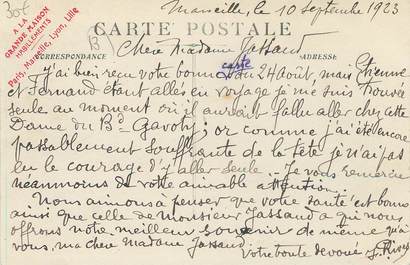 30f
A LA
GRANDE MAISON
HABILLEMENTS
Paris, Marseille, Lyon, Lille
Marseille, le 10 Septembre 1923
CARTE POSTALE
CORRESPONDANCE
ADRESSE
Chère Madame Jassaud
J'ai bien reçu votre bonne carte du 24 août, mais Etienne
et Fernand étant allés en voyage je me suis trouvée
seule au moment où il aurait fallu aller chez cette
Dame du Bd Gavoty; or comme j'ai été encore
passablement souffrante de la tête je n'ai pas
eu le courage d'y aller seule. Je vous remercie
néanmoins de votre aimable attention.
Nous aimons à penser que votre santé est bonne
ainsi que celle de Monsieur Jassaud a qui nous
offrons notre meilleur souvenir de même qu'à
vous, ma chère madame Jassaud.
Votre toute dévouée